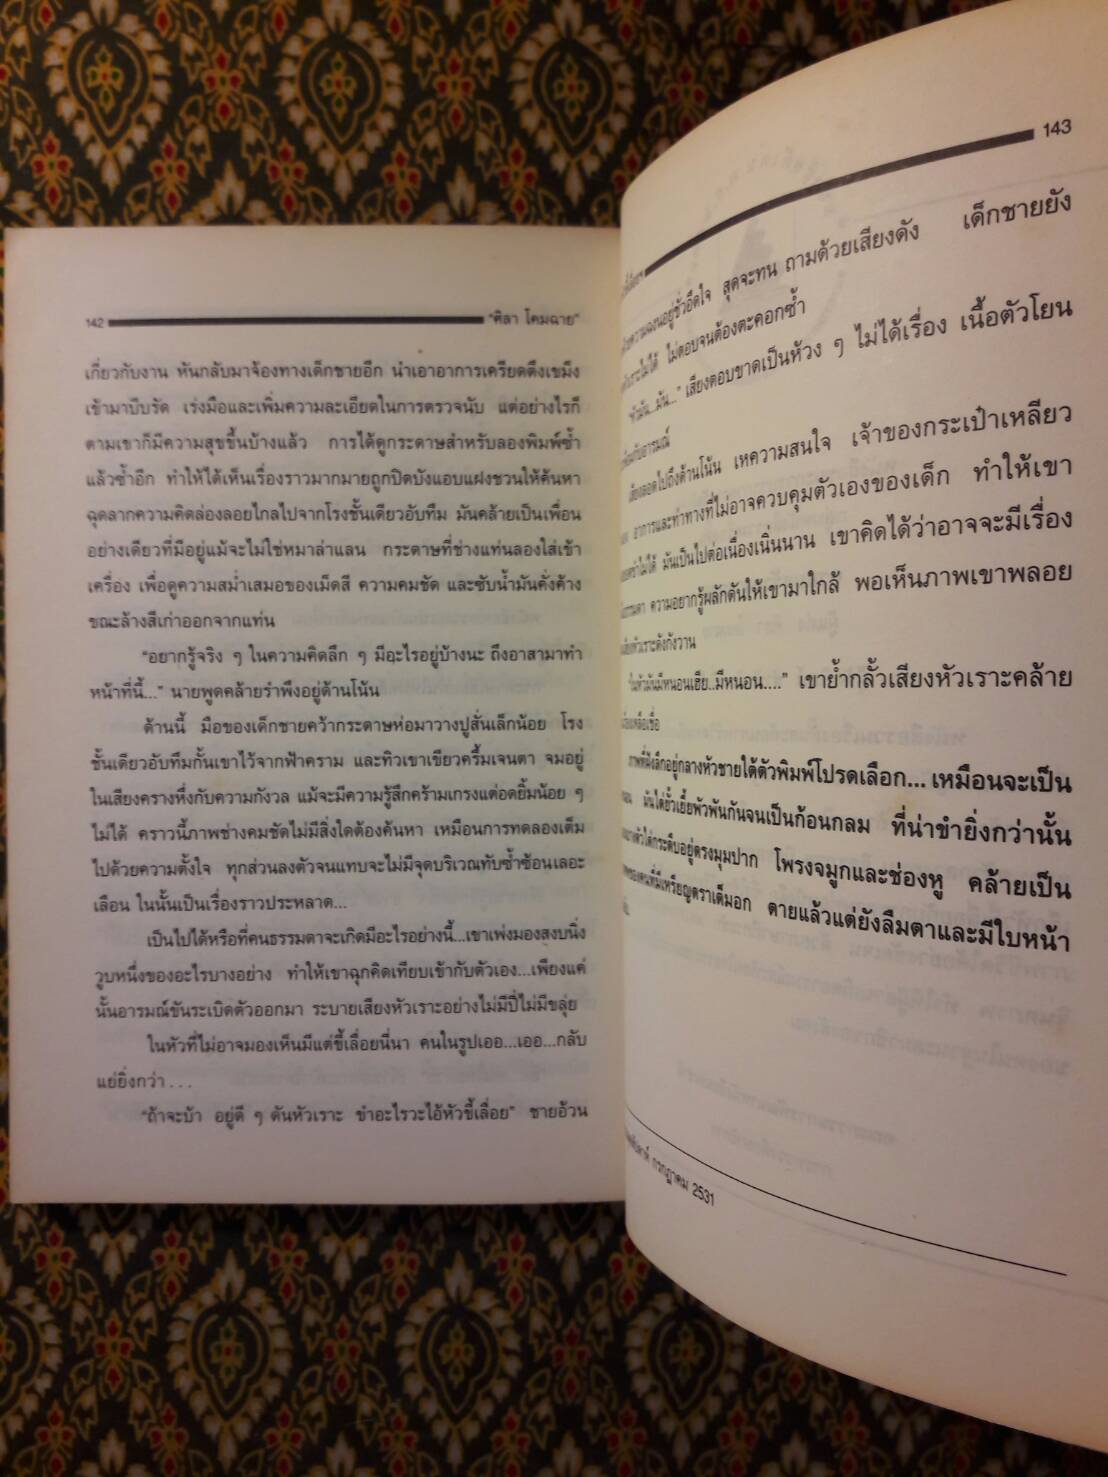 142 "ศิลา โคมฉาย"
เกี่ยวกับงาน หันกลับมาจ้องทางเด็กชายอีก นำเอาอาการเครียดตึงเขม็ง
เข้ามาบีบรัด เร่งมือและเพิ่มความละเอียดในการตรวจนับ แต่อย่างไรก็
ตามเขาก็มีความสุขขึ้นบ้างแล้ว การได้ดูกระดาษสำหรับลองพิมพ์ซ้ำ
แล้วซ้ำอีก ทำให้ได้เห็นเรื่องราวมากมายถูกปิดบังแอบแฝงชวนให้ค้นหา
ฉุดลากความคิดล่องลอยไกลไปจากโรงชั้นเดียวอับทึม มันคล้ายเป็นเพื่อน
อย่างเดียวที่มีอยู่แม้จะไม่ใช่หมาล่าแลน กระดาษที่ช่างแท่นลองใส่เข้า
เครื่อง เพื่อดูความสม่ำเสมอของเม็ดสี ความคมชัด และซับน้ำมันคั่งค้าง
ขณะล้างสีเก่าออกจากแท่น
"อยากรู้จริง ๆ ในความคิดลึก ๆ มีอะไรอยู่บ้างนะ ถึงอาสามาทำ
หน้าที่นี้..." นายพูดคล้ายรำพึงอยู่ด้านโน้น
ด้านนี้ มือของเด็กชายคว้ากระดาษห่อมาวางปูสั่นเล็กน้อย โรง
ชั้นเดียวอับทึมกั้นเขาไว้จากฟ้าคราม และทิวเขาเขียวครึ้มเจนตา จมอยู่
ในเสียงครางหึ่งกับความกังวล แม้จะมีความรู้สึกคร้ามเกรงแต่อดยิ้มน้อย ๆ
ไม่ได้ คราวนี้ภาพช่างคมชัดไม่มีสิ่งใดต้องค้นหา เหมือนการทดลองเต็ม
ไปด้วยความตั้งใจ ทุกส่วนลงตัวจนแทบจะไม่มีจุดบริเวณทับซ้ำซ้อนเลอะ
เลือน ในนั้นเป็นเรื่องราวประหลาด...
เป็นไปได้หรือที่คนธรรมดาจะเกิดมีอะไรอย่างนี้...เขาเพ่งมองสงบนิ่ง
วูบหนึ่งของอะไรบางอย่าง ทำให้เขาฉุกคิดเทียบเข้ากับตัวเอง...เพียงแค่
นั้นอารมณ์ขันระเบิดตัวออกมา ระบายเสียงหัวเราะอย่างไม่มีปี่ไม่มีขลุ่ย
ในหัวที่ไม่อาจมองเห็นมีแต่ขี้เลื่อยนี่นา คนในรูปเออ...เออ...กลับ
แย่ยิ่งกว่า...
"ถ้าจะบ้า อยู่ดี ๆ ดันหัวเราะ ขำอะไรวะไอ้หัวขี้เลื่อย" ชายอ้วน
143
ความฉงนอยู่ชั่วอึดใจ สุดจะทน ถามด้วยเสียงดัง เด็กชายยัง
ไม่ได้ ไม่ตอบจนต้องตะคอกซ้ำ
"หัวมัน...มัน..." เสียงตอบขาดเป็นห้วง ๆ ไม่ได้เรื่อง เนื้อตัวโยน
กับอารมณ์
เสียงลอดไปถึงด้านโน้น เหความสนใจ เจ้าของกระเป๋าเหลียว
อาการและท่าทางที่ไม่อาจควบคุมตัวเองของเด็ก ทำให้เขา
ไม่ได้ มันเป็นไปต่อเนื่องเนิ่นนาน เขาคิดได้ว่าอาจจะมีเรื่อง
ธรรมดา ความอยากรู้ผลักดันให้เขามาใกล้ พอเห็นภาพเขาพลอย
หัวเราะดังกังวาน
"ในหัวมันมีหนอนเฮีย..มีหนอน...." เขาย้ำกลั้วเสียงหัวเราะคล้าย
เหลือเชื่อ
ภาพที่ฝังลึกอยู่กลางหัวชายใต้ตัวพิมพ์โปรดเลือก... เหมือนจะเป็น
หนอน มันได้ยั้วเยี้ยพัวพันกันจนเป็นก้อนกลม ที่น่าขำยิ่งกว่านั้น
บางตัวไต่กระดืบอยู่ตรงมุมปาก โพรงจมูกและช่องหู คล้ายเป็น
ของคนที่มีเหรียญตราเต็มอก ตายแล้วแต่ยังลืมตาและมีใบหน้า
กรกฎาคม 2531